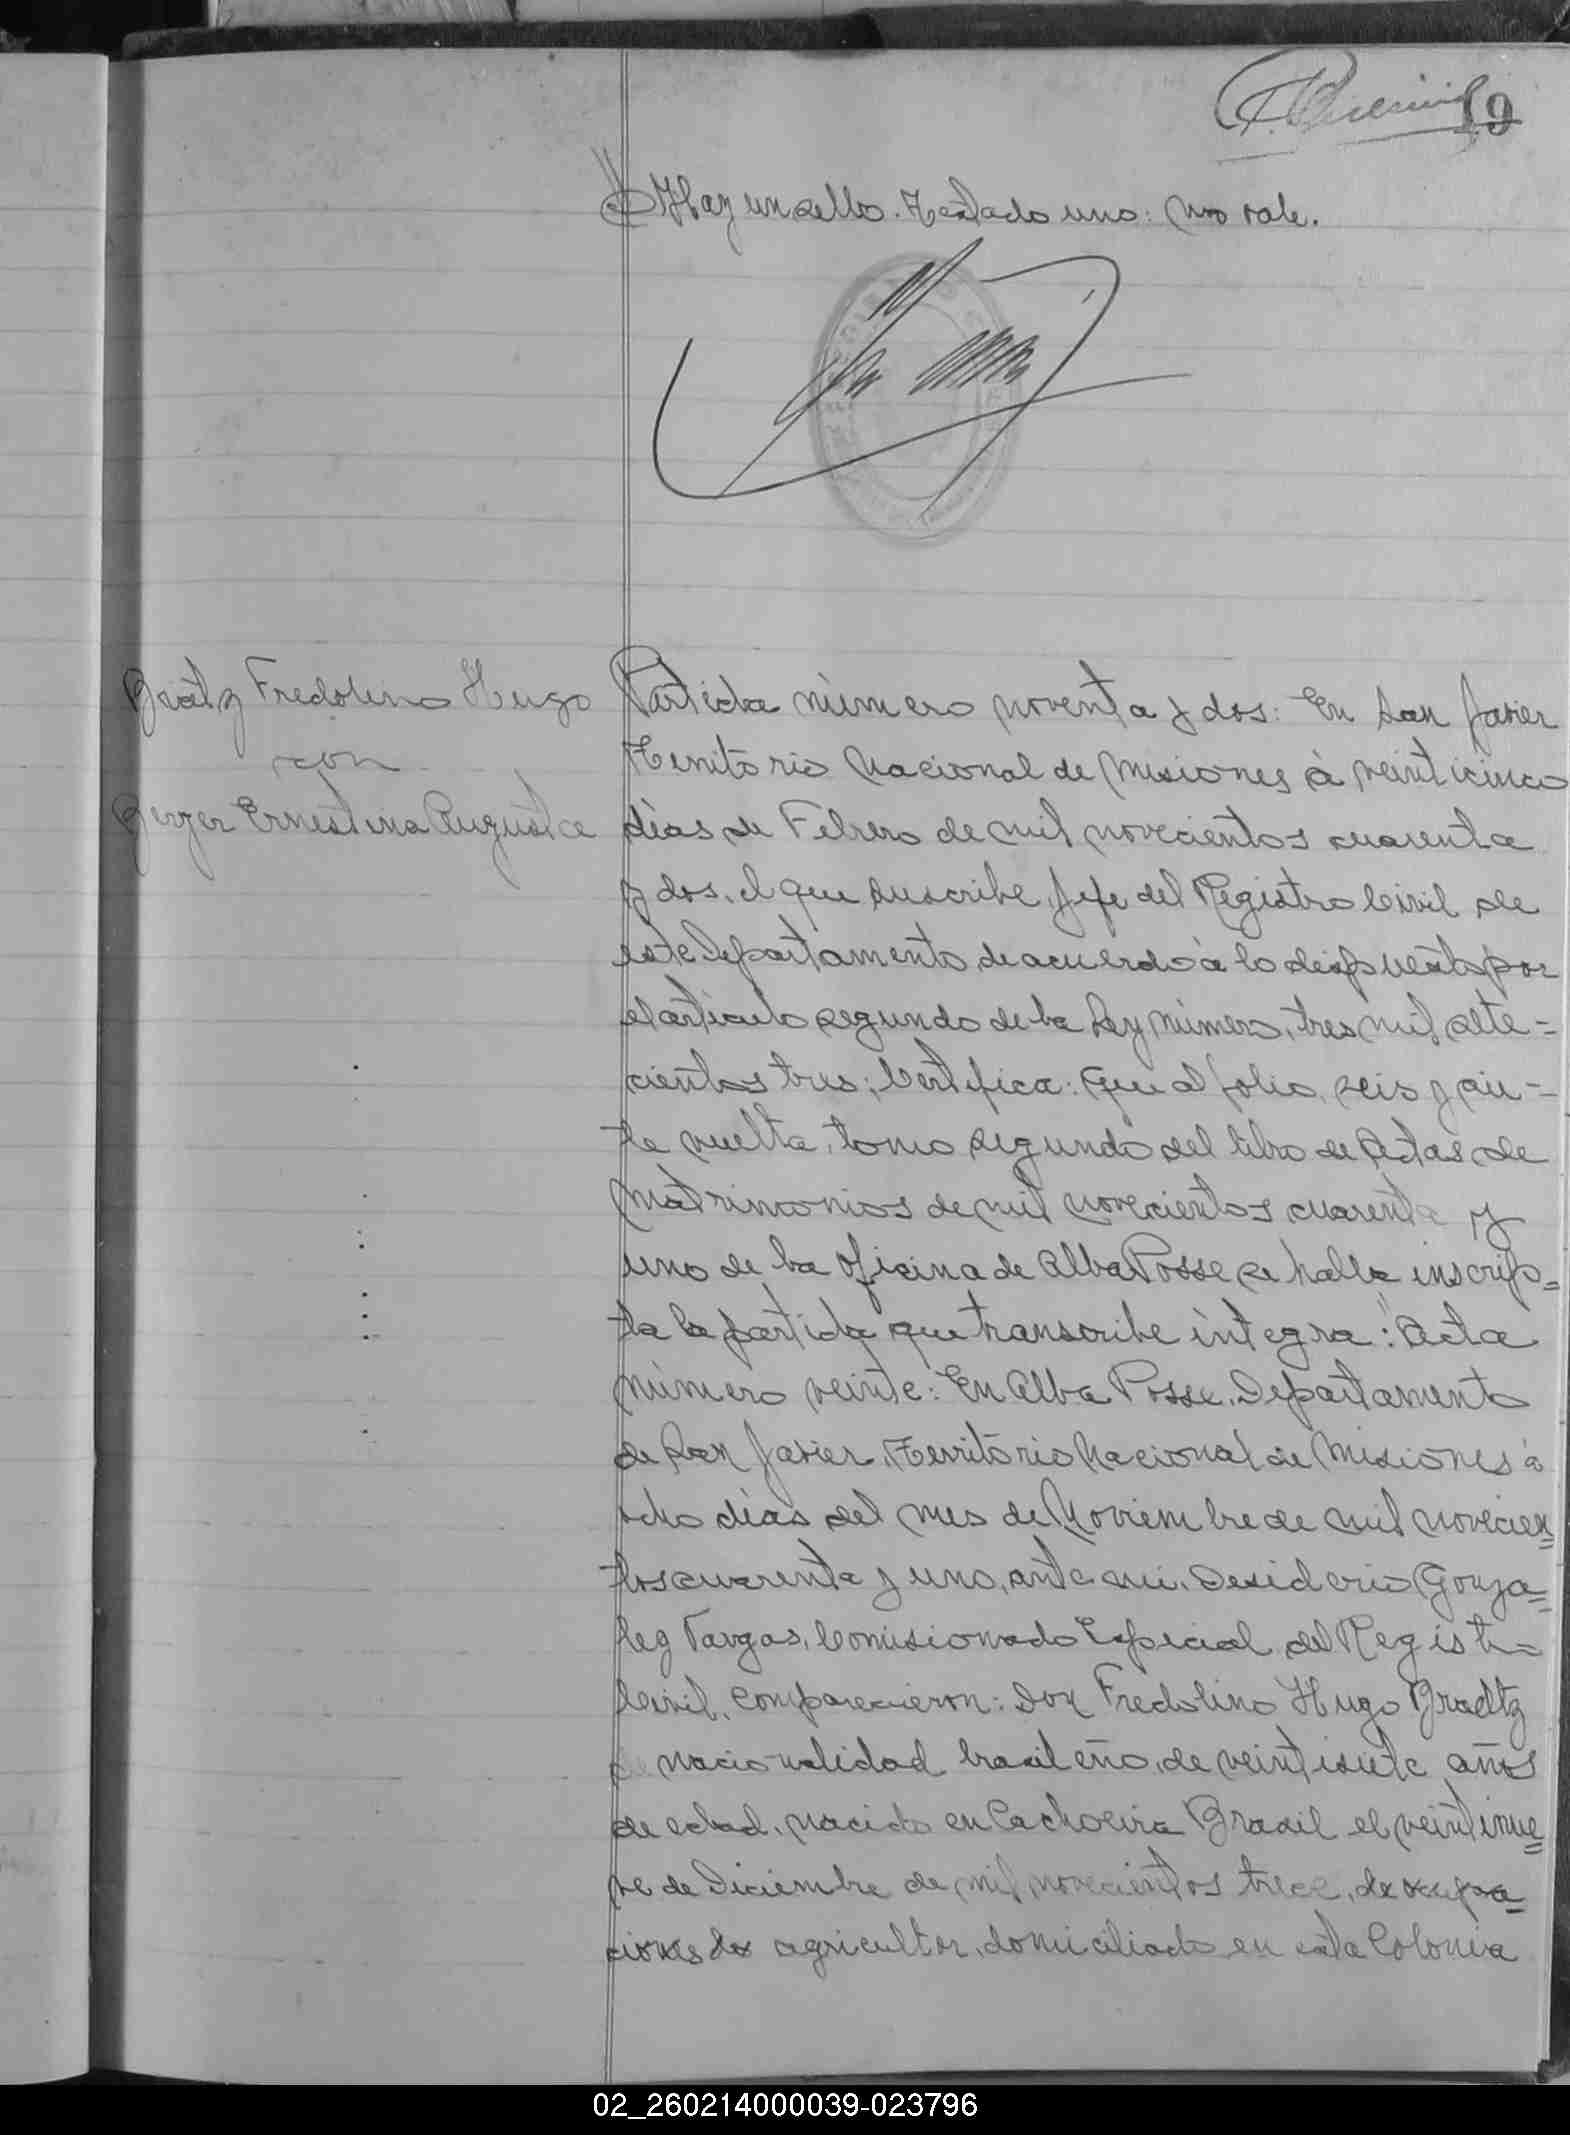 19
Hay un sello. Testado uno: no vale.
Fredolino Hugo
con
Ernestina Augusta
Partida número noventa y dos: En San Javier
Territorio Nacional de Misiones à veinticinco
días de Febrero de mil novecientos cuarenta
y dos, el que suscribe, Jefe del Registro Civil de
este Departamento de acuerdo à lo dispuesto por
el artículo segundo de la Ley número, tres mil sete=
cientos tres; Certifica: Que al folio, seis y
vuelta, tomo segundo del libro de Actas de
Matrimonios de mil novecientos cuarenta y
uno de la oficina de Alba Posse se halla inscrip=
ta la partida que transcribe íntegra: "Acta
número veinte: En Alba Posse, Departamento
de San Javier, Territorio Nacional de Misiones à
ocho días del mes de Noviembre de mil novecien=
tos cuarenta y uno, ante mi, Desiderio Gonza=
lez Vargas, Comisionado Especial del Registro
Civil, comparecieron: Don Fredolino Hugo Graetz
de nacionalidad brasileño, de veintisiete años
de edad, nacido en Cachoeira Brasil el veintinue=
ve de Diciembre de mil novecientos trece, de ocupa=
ciones de agricultor, domiciliado en esta Colonia
02_260214000039-023796